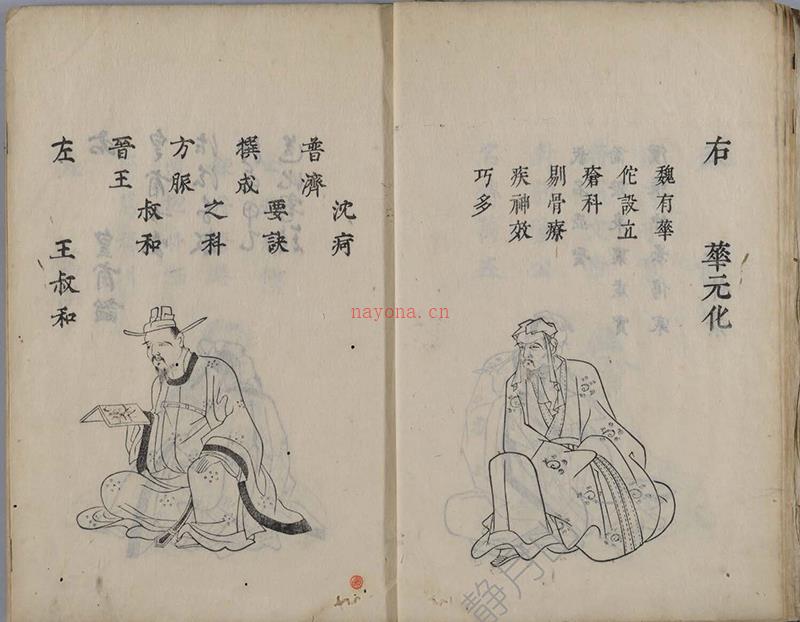 右 華元化
魏有華
佗設立
瘡科
剔骨療
疾神效
巧多
左 王叔和
晉王
叔和
方脈
之科
撰成
要訣
普濟
沈疴
nayona.cn
静月